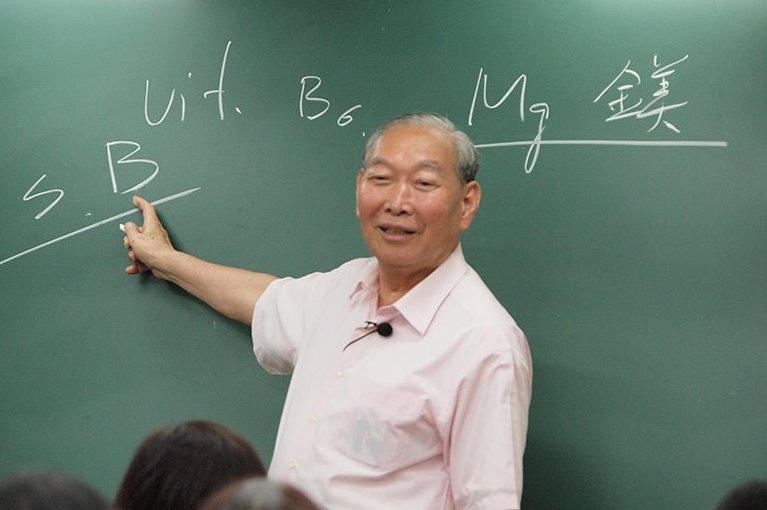 Vit. B6. Mg 鎂
S.B